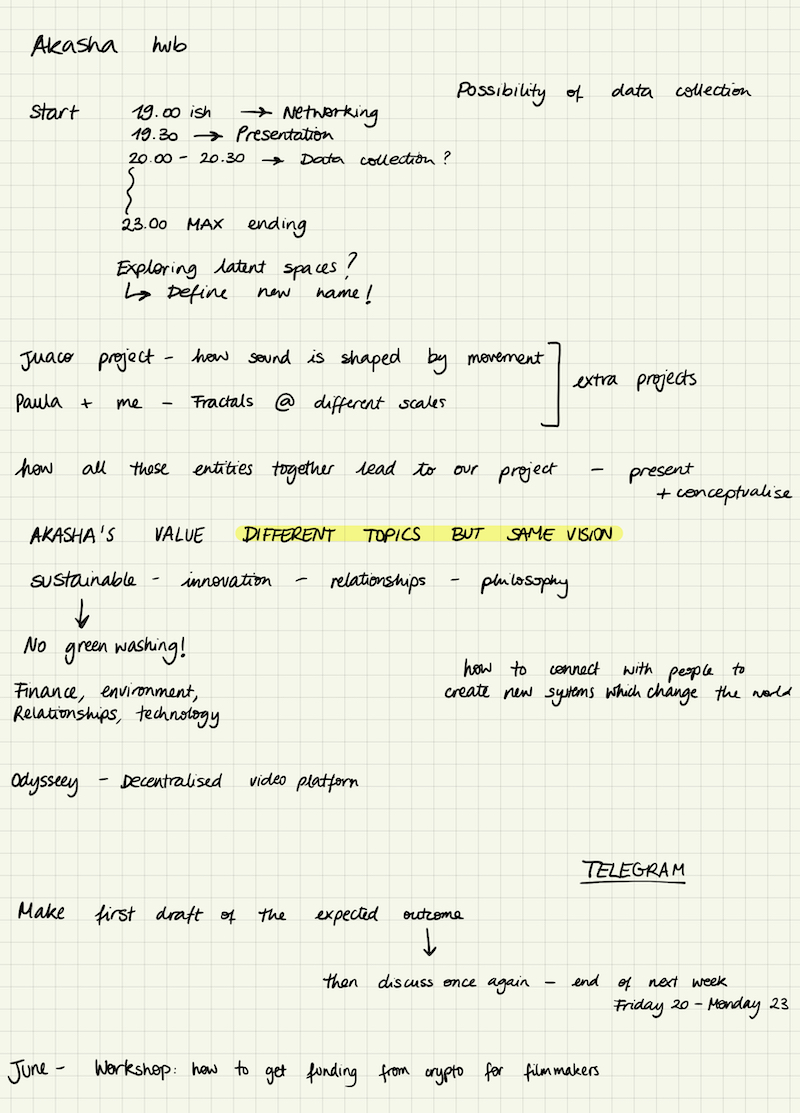 Akasha hub
Possibility of data collection
Start 19.00 ish → Networking
19.30 → Presentation
20.00 - 20.30 → Data collection?
23.00 MAX ending
Exploring latent spaces?
↳ Define new name!
Juaco project - how sound is shaped by movement
extra projects
Paula + me - Fractals @ different scales
how all these entities together lead to our project - present
+ conceptualise
AKASHA'S VALUE DIFFERENT TOPICS BUT SAME VISION
sustainable - innovation - relationships - philosophy
↓
No green washing!
how to connect with people to
create new systems which change the world
Finance, environment,
Relationships, technology
Odysseey - Decentralised video platform
TELEGRAM
Make first draft of the expected outcome
↓
then discuss once again - end of next week
Friday 20 - Monday 23
June - Workshop: how to get funding from crypto for filmmakers